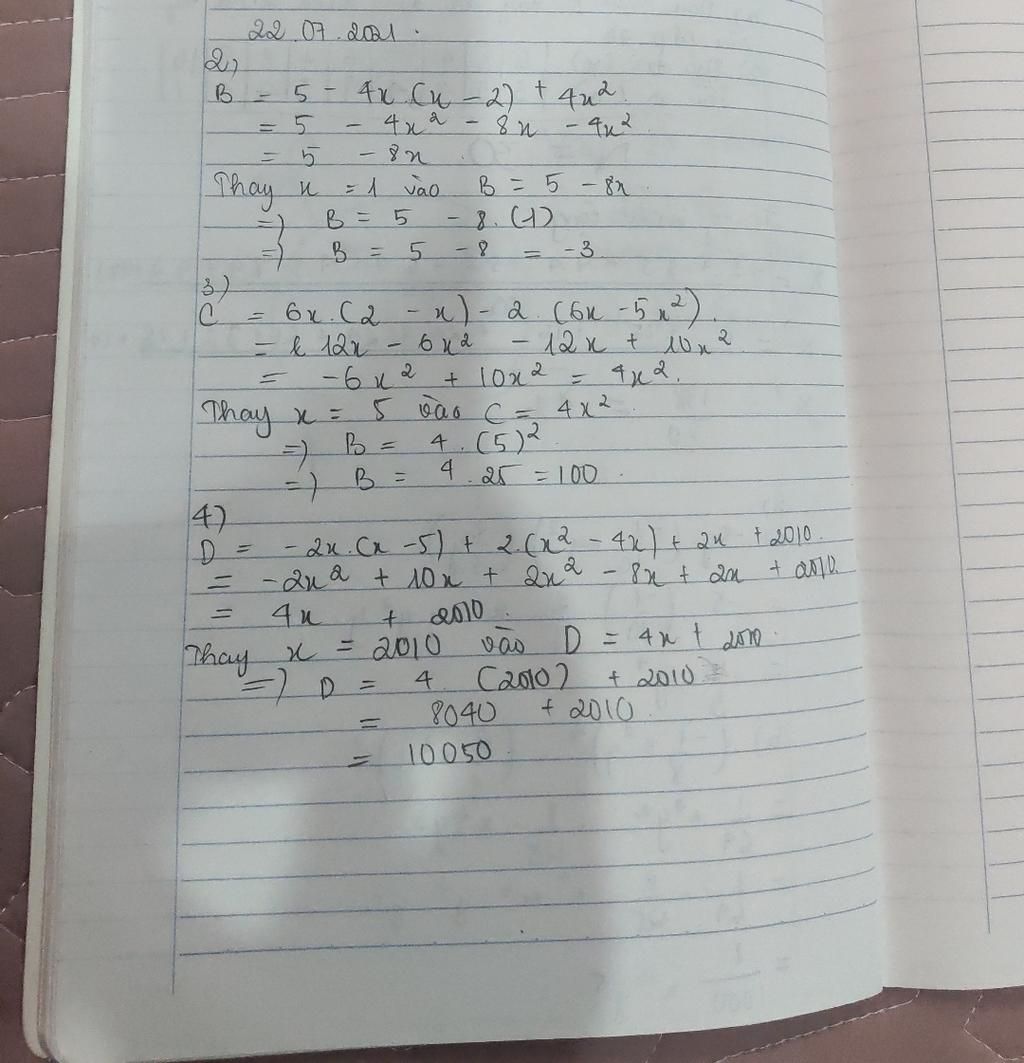 22.07.2021.
2)
B = 5 - 4x.(x - 2) + 4x²
= 5 - 4x² - 8x - 4x²
= 5 - 8x
Thay x = 1 vào B = 5 - 8x
=) B = 5 - 8.(1)
=) B = 5 - 8 = -3
3)
C = 6x.(2 - x) - 2.(6x - 5x²).
= 12x - 6x² - 12x + 10x²
= -6x² + 10x² = 4x².
Thay x = 5 vào C = 4x²
=) B = 4.(5)²
=) B = 4.25 = 100.
4)
D = -2x.(x - 5) + 2.(x² - 4x) + 2x + 2010.
= -2x² + 10x + 2x² - 8x + 2x + 2010.
= 4x + 2010.
Thay x = 2010 vào D = 4x + 2010.
=) D = 4 (2010) + 2010
= 8040 + 2010
= 10050